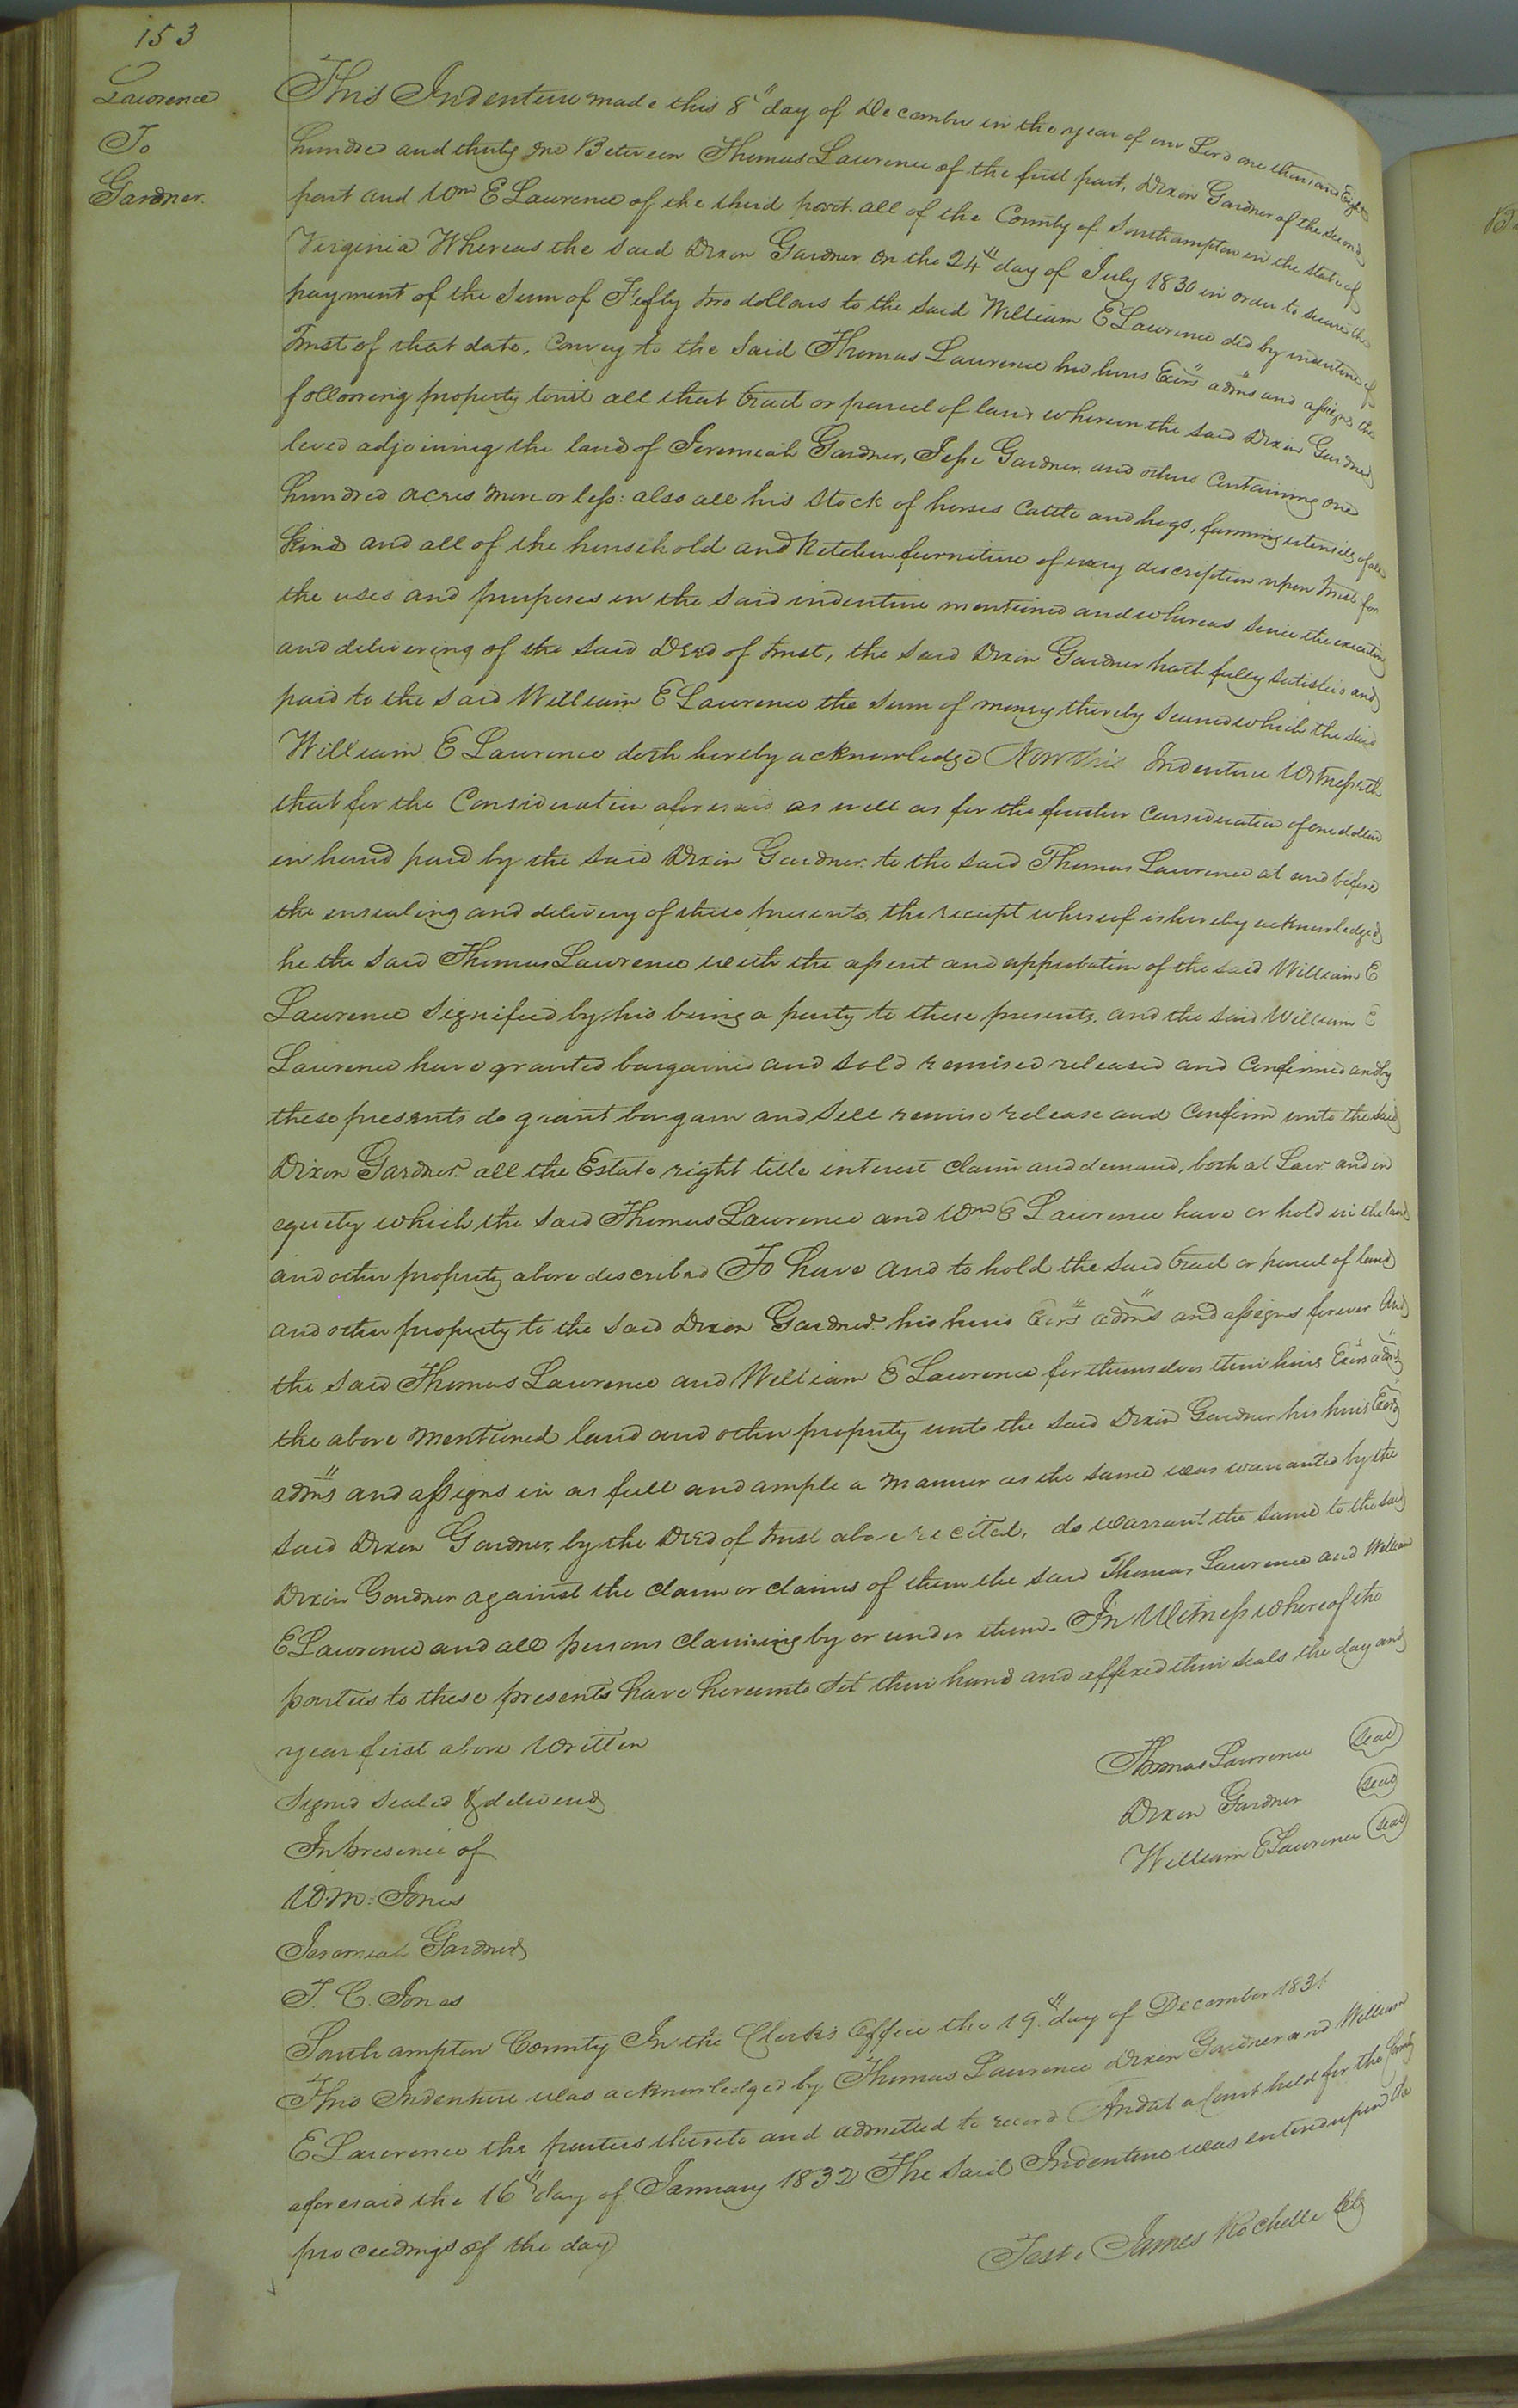 153
Lawrence
To
Gardner.
This Indenture made this 8th day of December in the year of our Lord one thousand Eight
hundred and thirty one Between Thomas Lawrence of the first part, Dixon Gardner of the second
part and Wm E Lawrence of the third part. all of the County of Southampton in the state of
Virginia Whereas the said Dixon Gardner on the 24th day of July 1830 in order to secure the
payment of the sum of Fifty two dollars to the said William E Lawrence did by indenture of
Trust of that date, Convey to the said Thomas Lawrence his heirs Exors adms and assigns the
following property towit all that tract or parcel of land whereon the said Dixon Gardner
lived adjoining the land of Jeremiah Gardner, Jesse Gardner, and others Containing one
hundred acres more or less: also all his stock of horses Cattle and hogs, farming utensils of all
kind and all of the household and kitchen furniture of every description upon trust for
the uses and purposes in the said indenture mentioned and whereas since the execution
and delivering of the said Deed of trust, the said Dixon Gardner hath fully satisfied and
paid to the said William E Lawrence the sum of money thereby secured which the said
William E Lawrence doth hereby acknowledge Now this Indenture Witnesseth
that for the Consideration aforesaid as well as for the further consideration of one dollar
in hand paid by the said Dixon Gardner to the said Thomas Lawrence at and before
the ensealing and delivery of these presents, the receipt whereof is hereby acknowledged
he the said Thomas Lawrence with the assent and approbation of the said William E
Lawrence signified by his being a party to these presents, and the said William E
Lawrence have granted bargained and sold remised released and Confirmed and by
these presents do grant bargain and sell remise release and Confirm unto the said
Dixon Gardner all the Estate right title interest claim and demand, both at Law and in
equity which the said Thomas Lawrence and Wm E Lawrence have or hold in the land
and other property above described To have and to hold the said tract or parcel of land
and other property to the said Dixon Gardner his heirs Exors adms and assigns forever And
the said Thomas Lawrence and William E Lawrence for themselves their heirs Exors adms
the above mentioned land and other property unto the said Dixon Gardner his heirs Exors
adms and assigns in as full and ample a manner as the same was warranted by the
said Dixon Gardner, by the Deed of trust above recited, do warrant the same to the said
Dixon Gardner against the claim or claims of them the said Thomas Lawrence and William
E Lawrence and all persons claiming by or under them. In Witness whereof the
parties to these presents have hereunto set their hand and affixed their seals the day and
year first above written
Thomas Lawrence seal
Signed sealed & delivered
Dixon Gardner seal
In presence of
William E Lawrence seal
W.m. Jones
Jeremiah Gardner
T. C. Jones
Southampton County In the Clerk's Office the 19th day of December 1831
This Indenture was acknowledged by Thomas Lawrence Dixon Gardner and William
E Lawrence the parties thereto and admitted to record And at a Court held for the County
aforesaid the 16th day of January 1832 The said Indenture was entered upon the
proceedings of the day
Teste James Rochelle Clk